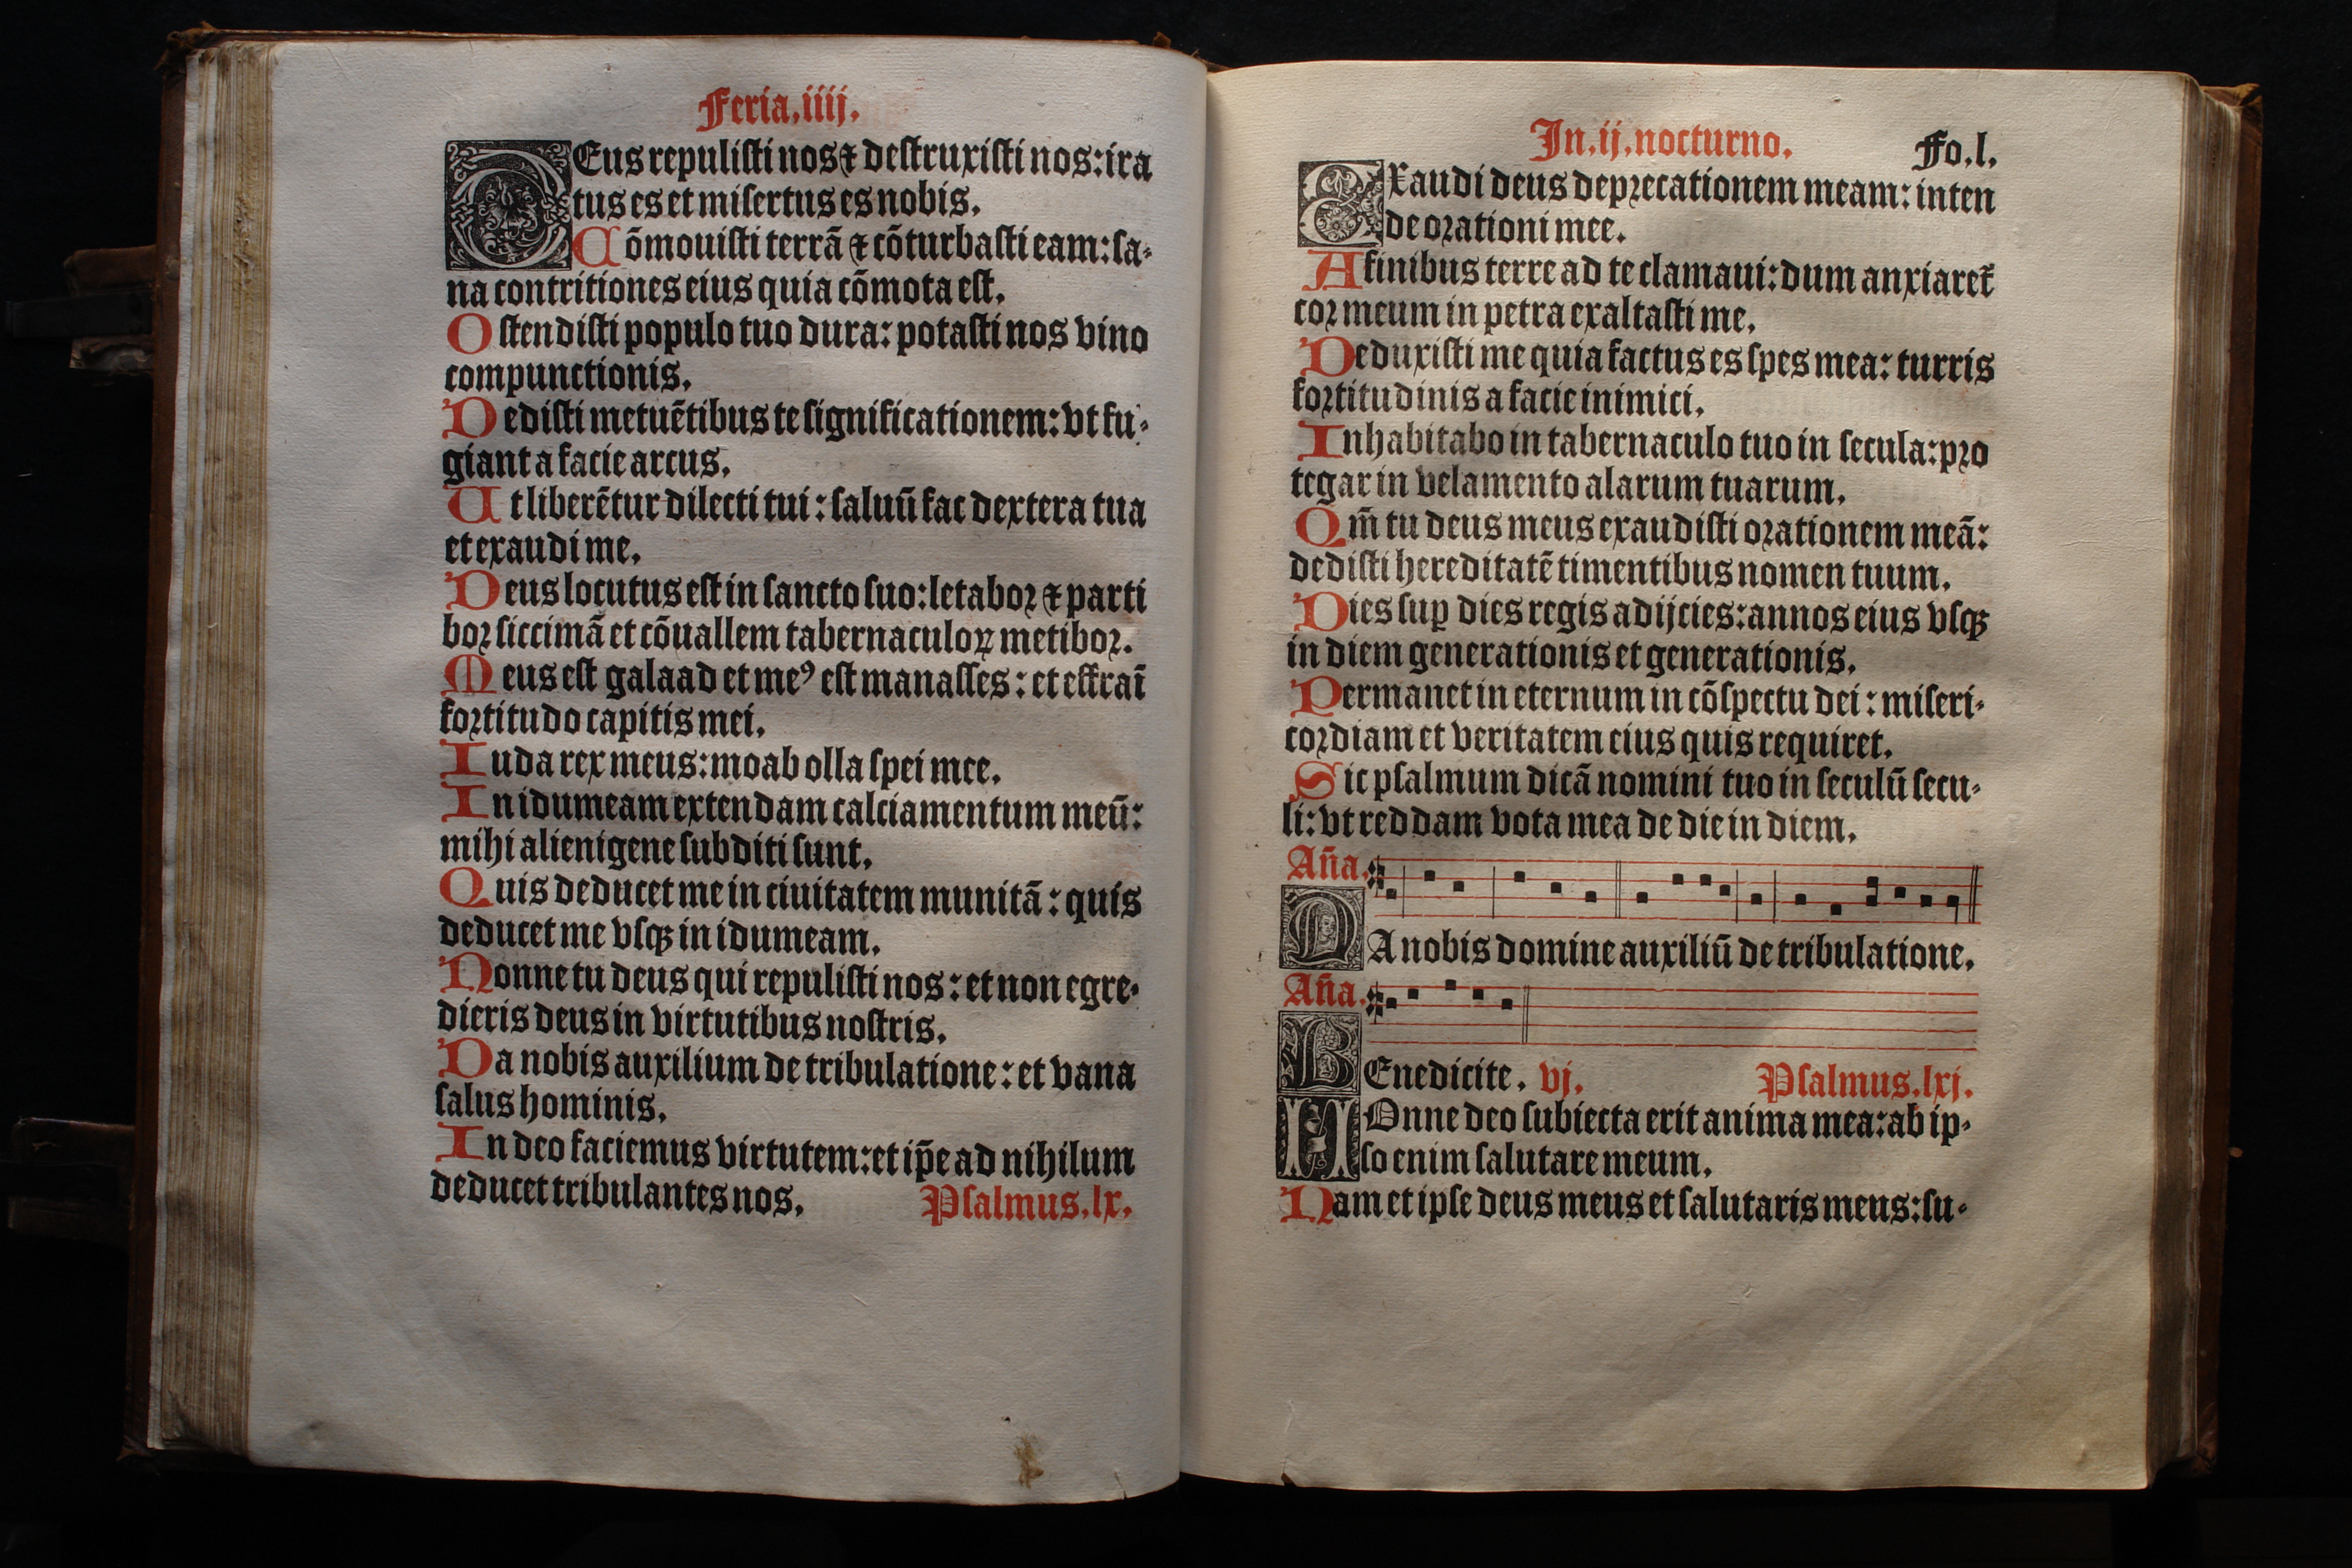 Feria.iiij.
DEus repuliſti nos ⁊ deſtruxiſti nos: ira
tus es et miſertus es nobis.
Cōmouiſti terrā ⁊ cōturbaſti eam: ſa-
na contritiones eius quia cōmota eſt.
Oſtendiſti populo tuo dura: potaſti nos vino
compunctionis.
Dediſti metuētibus te ſignificationem: vt fu-
giant a facie arcus.
Ut liberētur dilecti tui: ſaluū fac dextera tua
et exaudi me.
Deus locutus eſt in ſancto ſuo: letaboꝛ ⁊ parti
boꝛ ſiccimā et cōuallem tabernaculoꝝ metiboꝛ.
Meus eſt galaad et meꝰ eſt manaſſes: et effraī
foꝛtitudo capitis mei.
Iuda rex meus: moab olla ſpei mee.
In idumeam extendam calciamentum meū:
mihi alienigene ſubditi ſunt.
Quis deducet me in ciuitatem munitā: quis
deducet me vſqꝫ in idumeam.
Nonne tu deus qui repuliſti nos: et non egre-
dieris deus in virtutibus noſtris.
Da nobis auxilium de tribulatione: et vana
ſalus hominis.
In deo faciemus virtutem: et ip̄e ad nihilum
deducet tribulantes nos. Pſalmus.lx.
In.ij.nocturno. Fo.l.
EXaudi deus depꝛecationem meam: inten
de oꝛationi mee.
A finibus terre ad te clamaui: dum anxiaret᷑
coꝛ meum in petra exaltaſti me.
Deduxiſti me quia factus es ſpes mea: turris
foꝛtitudinis a facie inimici.
Inhabitabo in tabernaculo tuo in ſecula: pꝛo
tegar in velamento alarum tuarum.
Qm̄ tu deus meus exaudiſti oꝛationem meā:
dediſti hereditatē timentibus nomen tuum.
Dies ſuꝑ dies regis adijcies: annos eius vſqꝫ
in diem generationis et generationis.
Permanet in eternum in cōſpectu dei: miſeri-
coꝛdiam et veritatem eius quis requiret.
Sic pſalmum dicā nomini tuo in ſeculū ſecu-
li: vt reddam vota mea de die in diem.
Aña.
DA nobis domine auxiliū de tribulatione.
Aña.
BEnedicite. vj. Pſalmus.lxj.
NOnne deo ſubiecta erit anima mea: ab ip-
ſo enim ſalutare meum.
Nam et ipſe deus meus et ſalutaris meus: ſu-